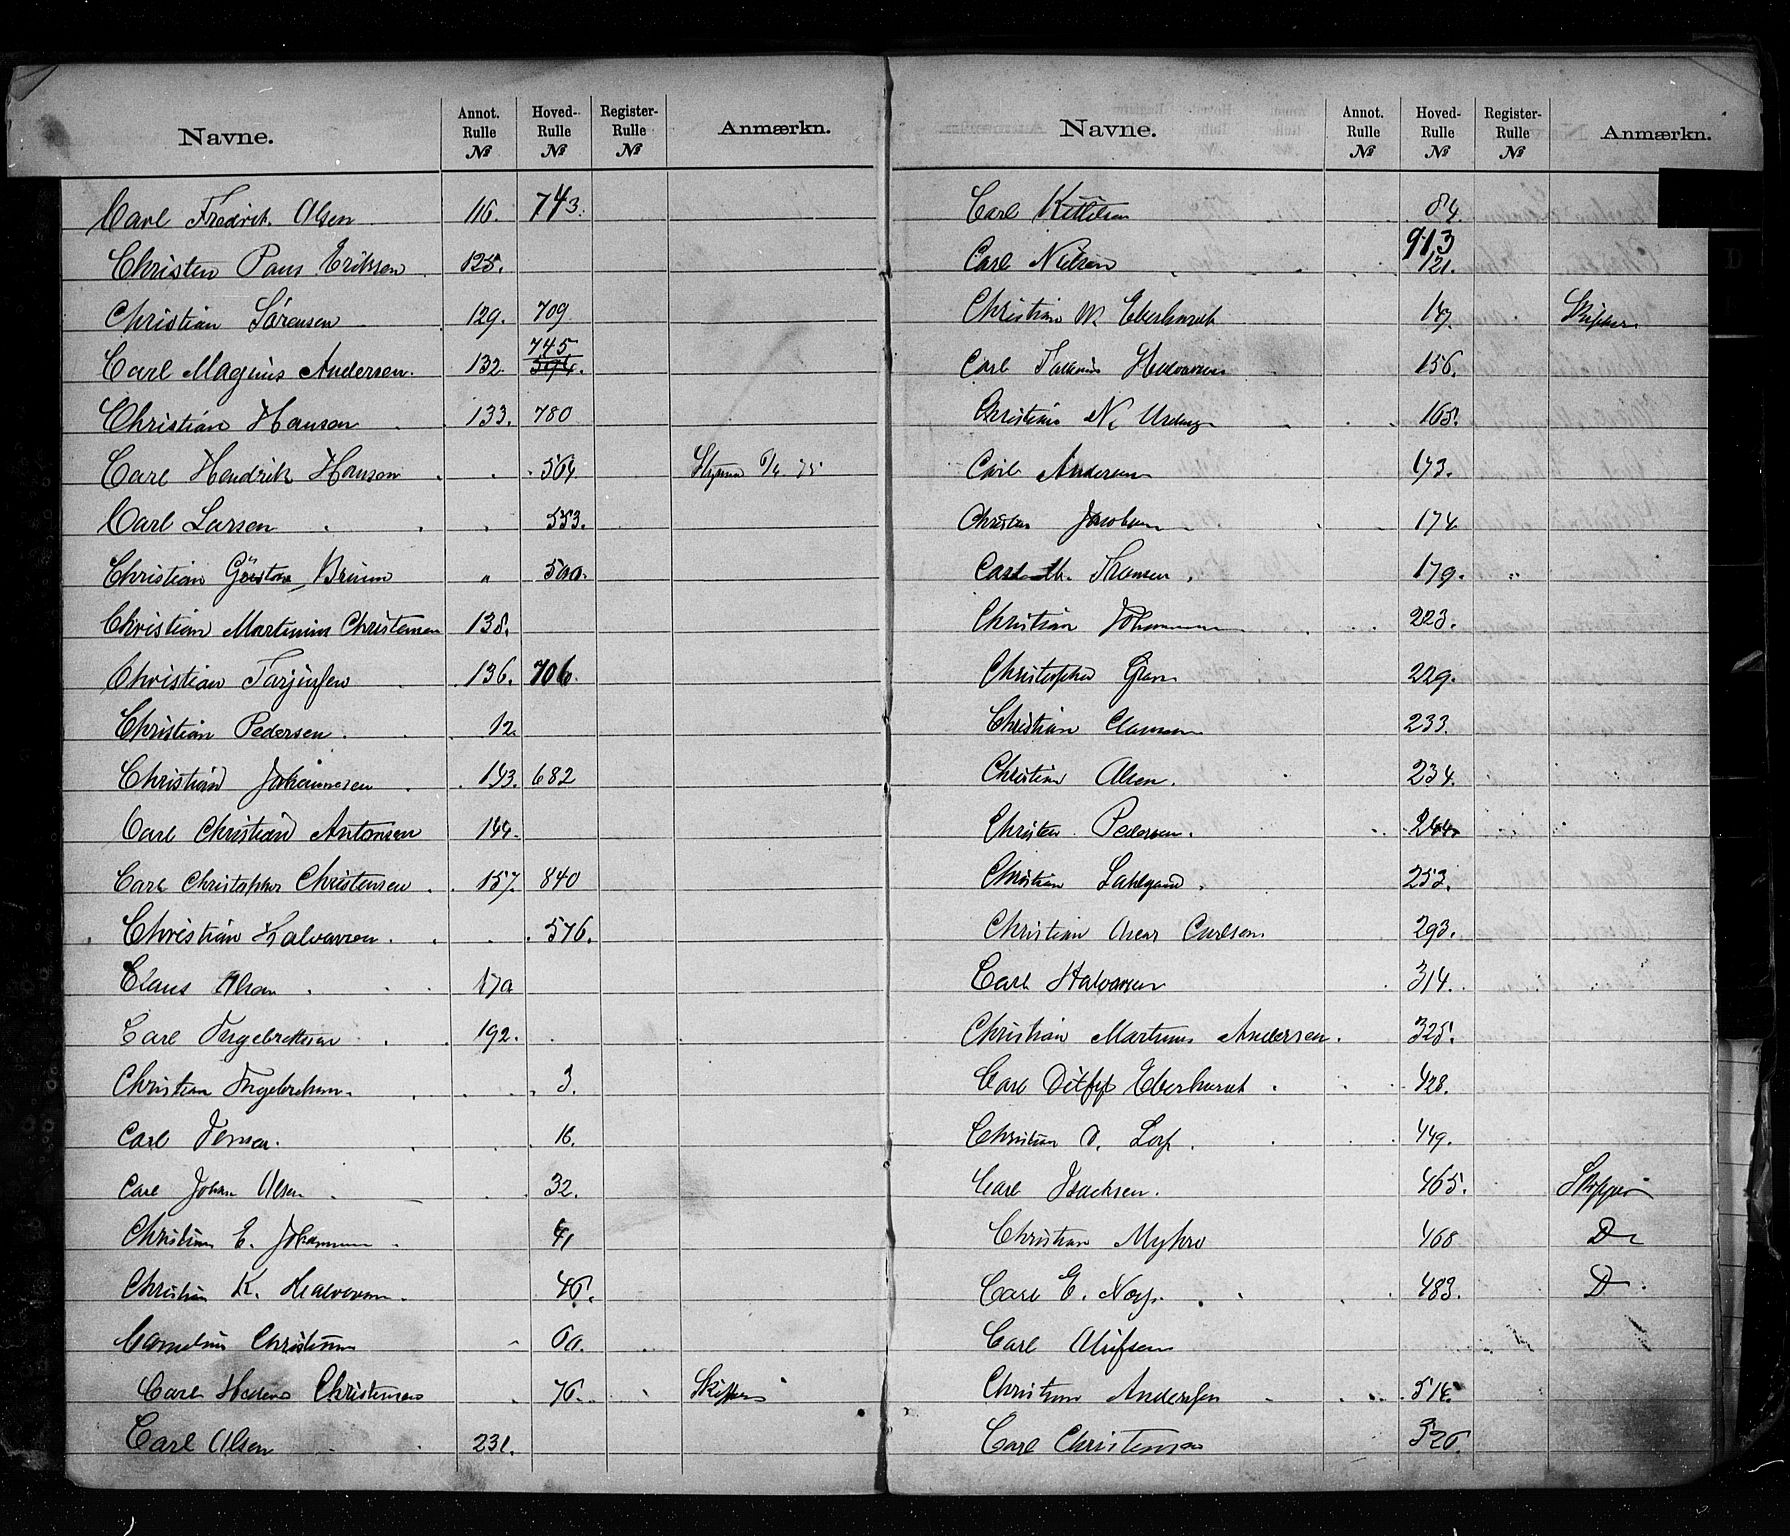 Navne. Annot. Rulle № Hoved-Rulle № Register-Rulle № Anmærkn.
Carl Fredrik Olsen 116 743.
Christen Paus Eriksen 125.
Christian Sørensen 129. 709
Carl Magnus Andersen. 132. 745 594.
Christian Hansen 133. 780
Carl Hendrik Hansen 564.
Carl Larsen 553.
Christian Gustav Bruun " 500.
Christian Martinius Christensen 138.
Christian Tarjusen 136. 706
Christian Pedersen. 12.
Christian Johannesen 143. 682
Carl Christian Antonsen 144.
Carl Christopher Christensen 157. 840
Christian Halvorsen. 576.
Claus Olsen 170
Carl Ingebretsen 192.
Christian Ingebretsen. 3.
Carl Jensen. 16.
Carl Johan Olsen 32.
Christian E. Johannesen 41
Christian K. Halvorsen. 46.
Cornelius Christensen 60.
Carl Christensen 76. Skipper
Carl Olsen 231.
Navne. Annot. Rulle № Hoved-Rulle № Register-Rulle № Anmærkn.
Carl Kittilsen 84.
Carl Nielsen 913 121.
Christian W. Eberhardt 147. Skipper
Carl Halvorsen 156.
Christian N. 165.
Carl Andersen 173.
Christen Jacobsen 174
Carl M. Thomsen. 179. "
Christian Johannesen 223.
Christopher Gran 229.
Christian Clausen 233.
Christian Olsen. 234.
Christen Pedersen. 244.
Christian 253.
Christian Oscar Carlsen 293.
Carl Halvorsen 314.
Christian Martinius Andersen. 325.
Carl Eberhardt 428.
Christian D. 449.
Carl Isachsen. 465. Skipper
Christian Myhre 468 Do
Carl E. 483. Do
Carl Olufsen
Christian Andersen 514.
Carl Christensen 526.